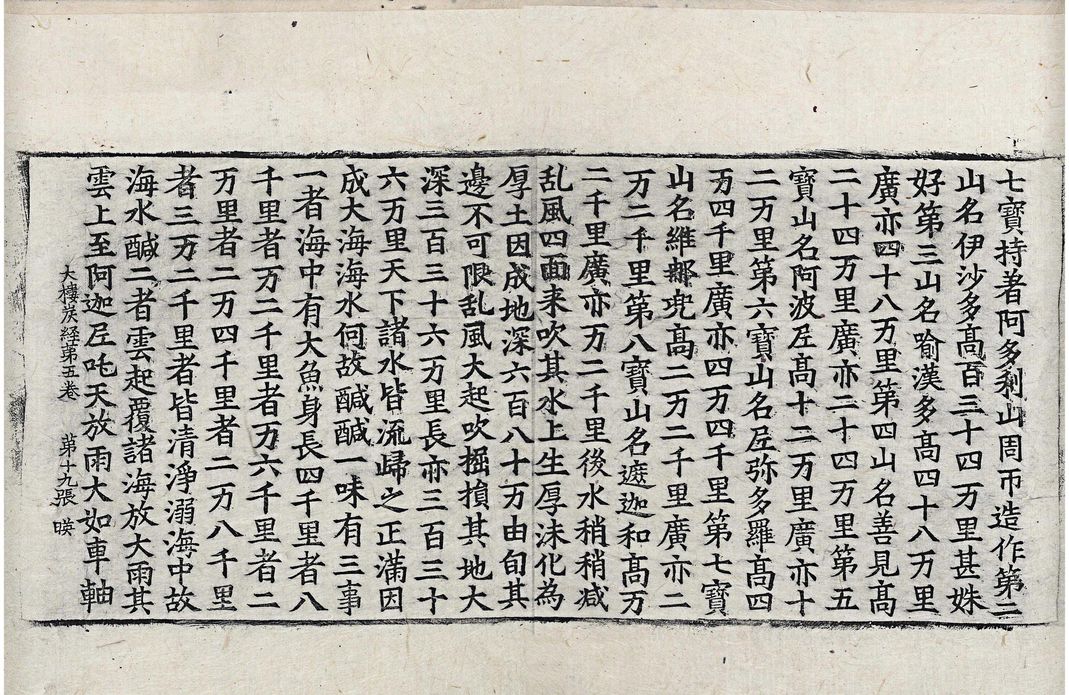 七寳持著阿多利山周帀造作第二
山名伊沙多髙百三十四万里甚姝
好第三山名喻漢多髙四十八万里
廣亦四十八万里第四山名善見髙
二十四万里廣亦二十四万里第五
寳山名阿波𡰱髙十二万里廣亦十
二万里第六寳山名𡰱弥多羅髙四
万四千里廣亦四万四千里第七寳
山名維那兜髙二万二千里廣亦二
万二千里第八寳山名遮迦和髙万
二千里廣亦万二千里後水稍稍减
乱風四面来吹其水上生厚沫化為
厚土因成地深六百八十万由旬其
邊不可限乱風大起吹掘損其地大
深三百三十六万里長亦三百三十
六万里天下諸水皆流歸之正滿因
成大海海水何故醎醎一味有三事
一者海中有大魚身長四千里者八
千里者万二千里者万六千里者二
万里者二万四千里者二万八千里
者三万二千里者皆清淨溺海中故
海水醎二者雲起覆諸海放大雨其
雲上至阿迦𡰱吒天放雨大如車軸
大樓炭経第五卷 第十九張 暎